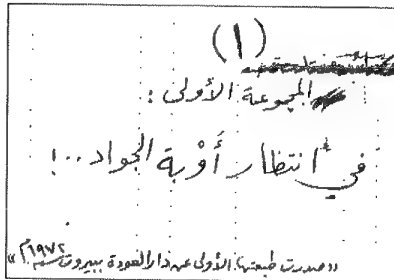 (١)
المجموعة الأولى :
في انتظار أَوْبة الجواد..!
«صدرت طبعتها الأولى عن دار العودة ببيروت سنة ١٩٧٢م»